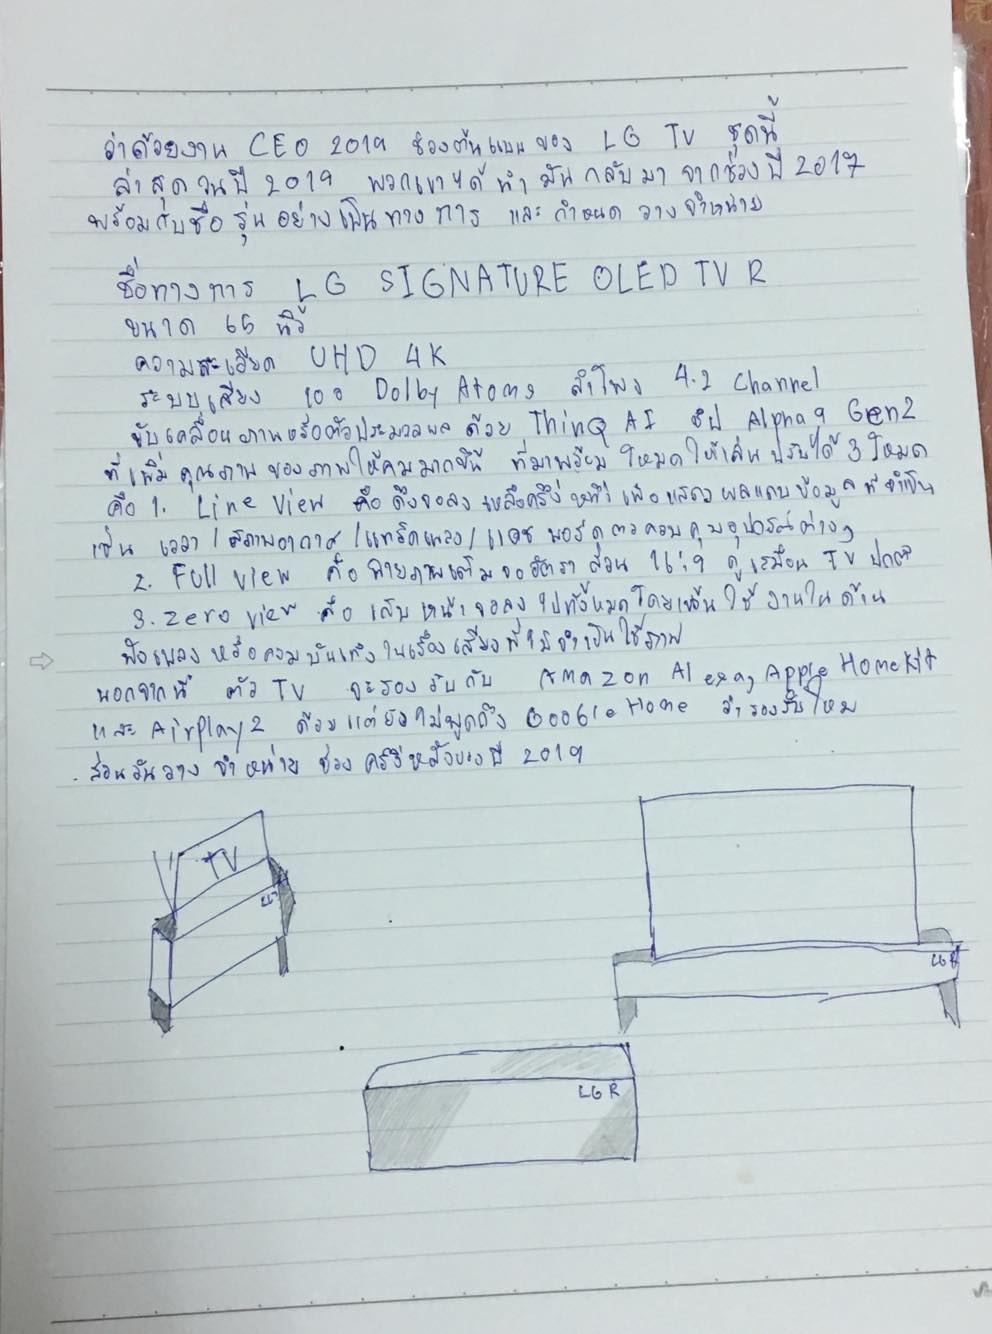 ว่าด้วยงาน CEO 2019 ช่วงต้นแบบของ LG TV ชุดนี้
ล่าสุดในปี 2019 พวกเขาได้นำมันกลับมา จากช่วงปี 2017
พร้อมกับชื่อรุ่นอย่างเป็นทางการ และกำหนดวางจำหน่าย
ชื่อทางการ LG SIGNATURE OLED TV R
ขนาด 65 นิ้ว
ความละเอียด UHD 4K
ระบบเสียง 100 Dolby Atoms ลำโพง 4.2 Channel
ขับเคลื่อนภาพหรือตัวประมวลผล ด้วย ThinQ AI ชิป Alpha 9 Gen2
ที่เพิ่มคุณภาพของภาพให้คมมากขึ้น ที่มาพร้อมโหมดให้เล่นปรับได้ 3 โหมด
คือ 1. Line View คือ ดึงจอลงเหลือครึ่งหนึ่ง เพื่อแสดงผลแถบข้อมูลที่จำเป็น
เช่น เวลา / สภาพอากาศ / แทร็คเพลง / แดชบอร์ดควบคุมอุปกรณ์ต่างๆ
2. Full View คือ ฉายภาพเต็มจออัตราส่วน 16:9 ดูเหมือน TV ปกติ
3. Zero View คือ เก็บหน้าจอลงไปทั้งหมดโดยเน้นใช้งานในด้าน
ฟังเพลง หรือความบันเทิงในเรื่องเสียงที่ไม่จำเป็นใช้ภาพ
นอกจากนี้ ตัว TV จะรองรับกับ Amazon Alexa, Apple HomeKit
และ AirPlay2 ด้วย แต่ยังไม่พูดถึง Google Home ว่ารองรับไหม
ส่วนวันวางจำหน่าย ช่วงครึ่งหลังของปี 2019
TV
LG
LG R
LG R